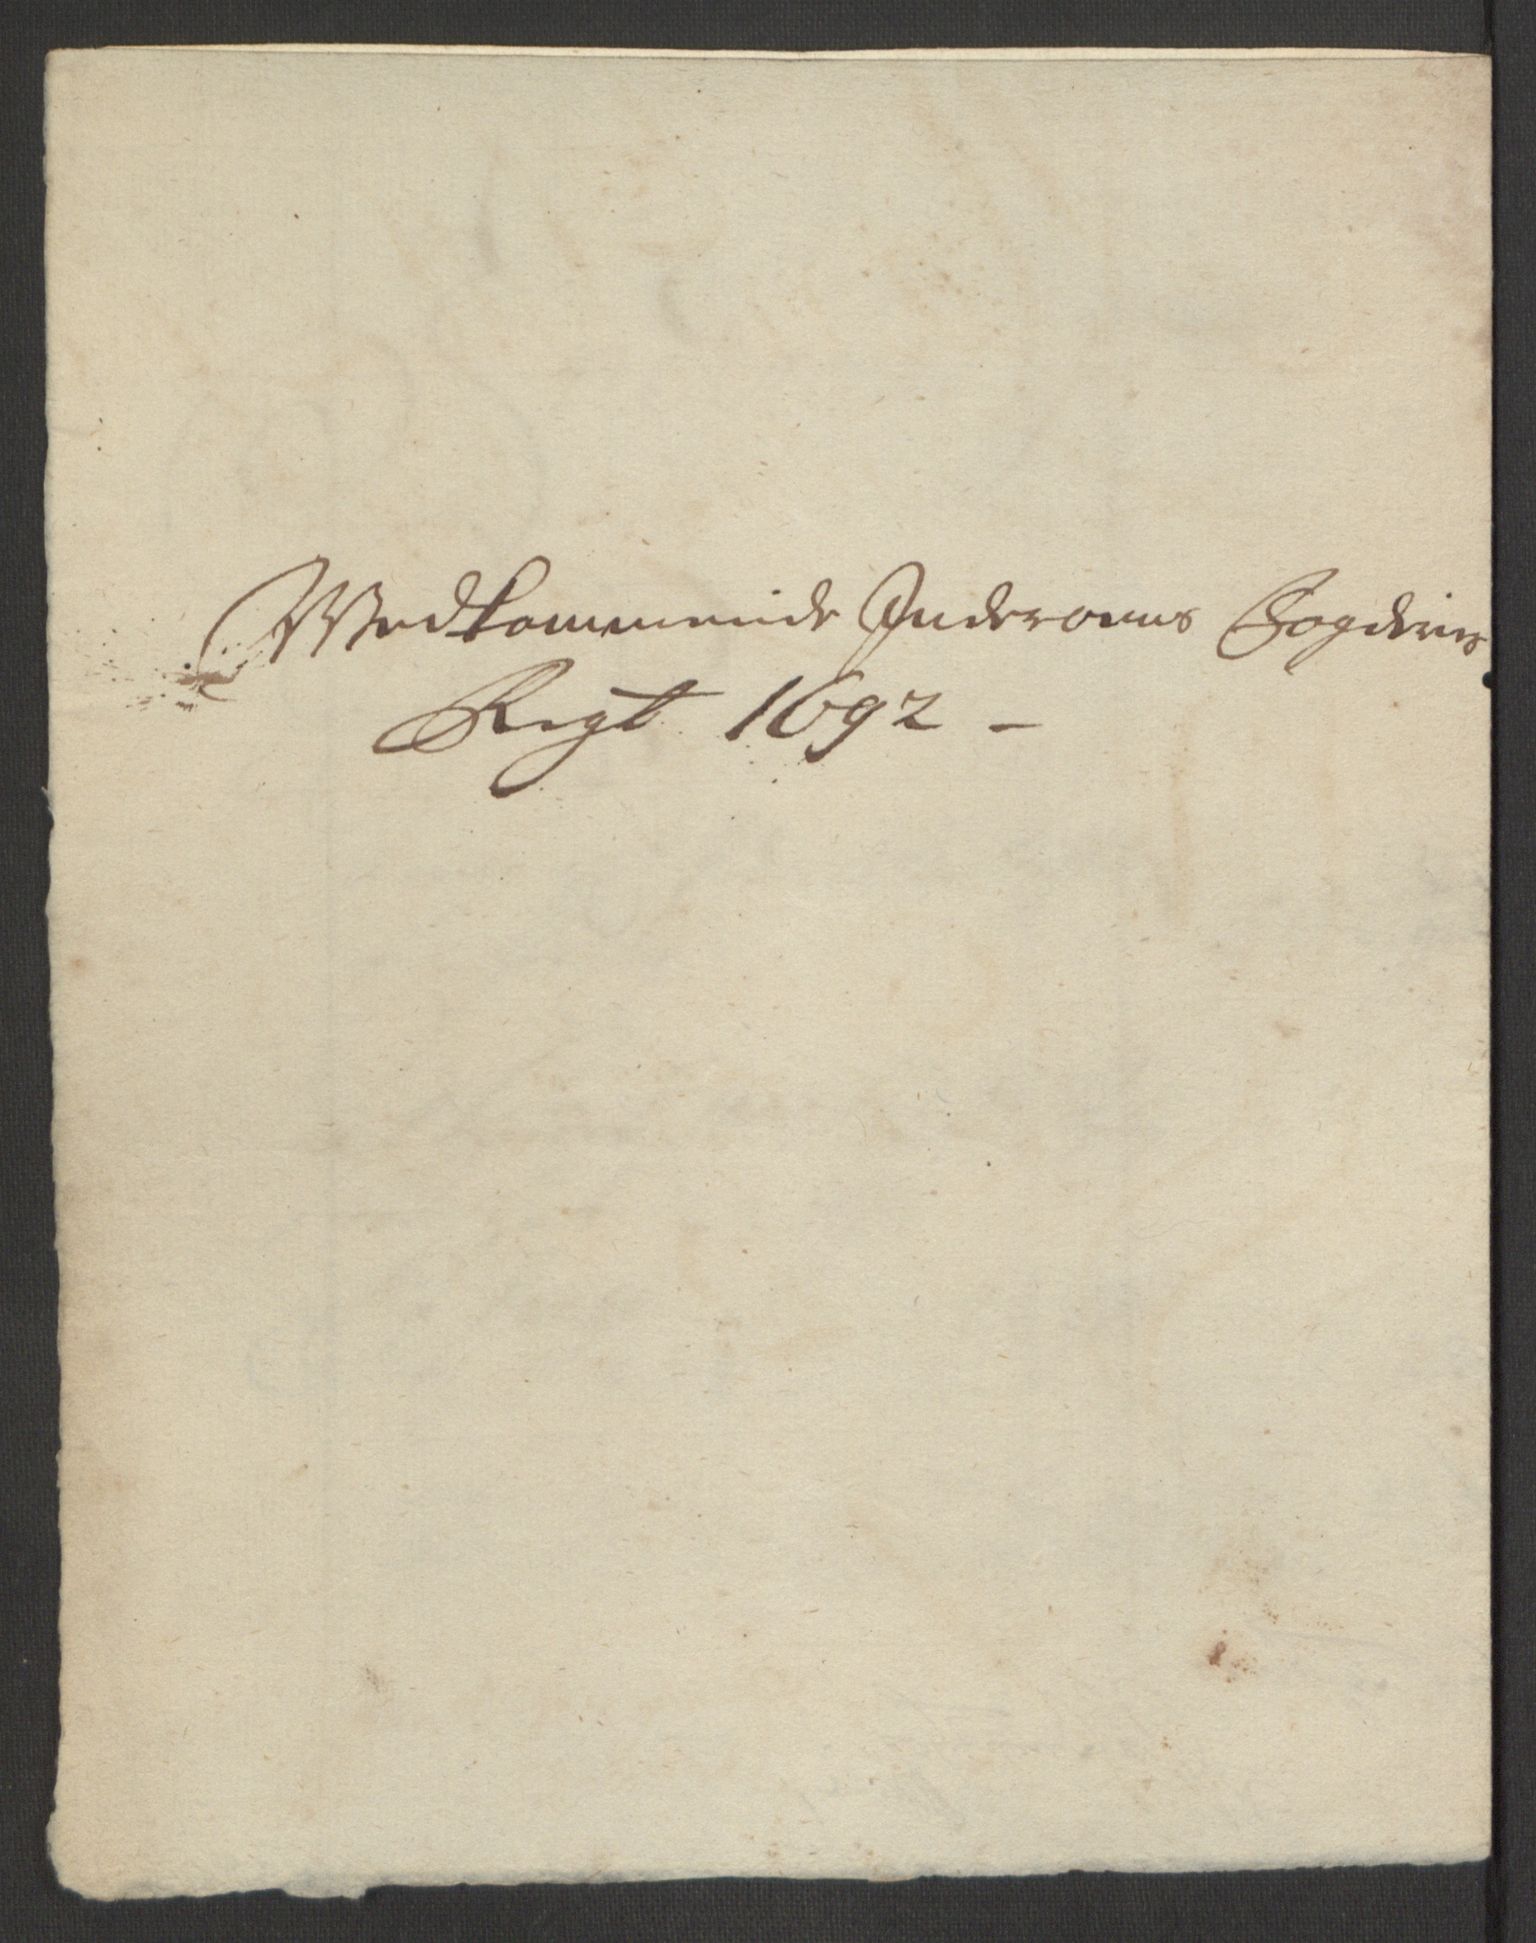 Wedkommende Inderoens Fogderies
Regt 1692 -